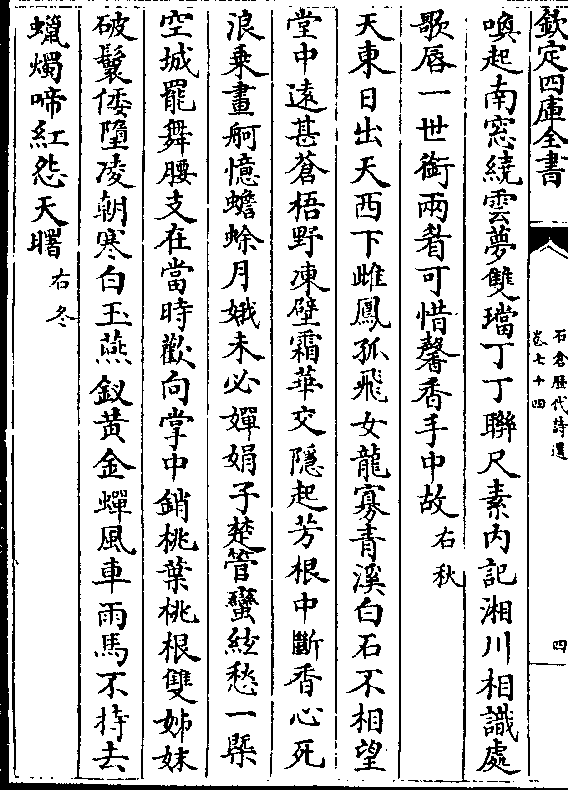 欽定四庫全書
石倉歷代詩選
卷七十四
四
喚起南窓繞雲夢雙璫丁丁聯尺素内記湘川相識處
歌唇一世銜雨㸔可惜馨香手中故右秋
天東日出天西下雌鳳孤飛女龍寡青溪白石不相望
堂中遠甚蒼梧野凍壁霜華交隱起芳根中斷香心死
浪乗畫舸憶蟾蜍月娥未必嬋娟子楚管蠻絃愁一槩
空城罷舞腰支在當時歡向掌中銷桃葉桃根雙姊妹
破鬟倭墮凌朝寒白玉燕釵黃金蟬風車雨馬不持去
蠟燭啼紅怨天曙右冬